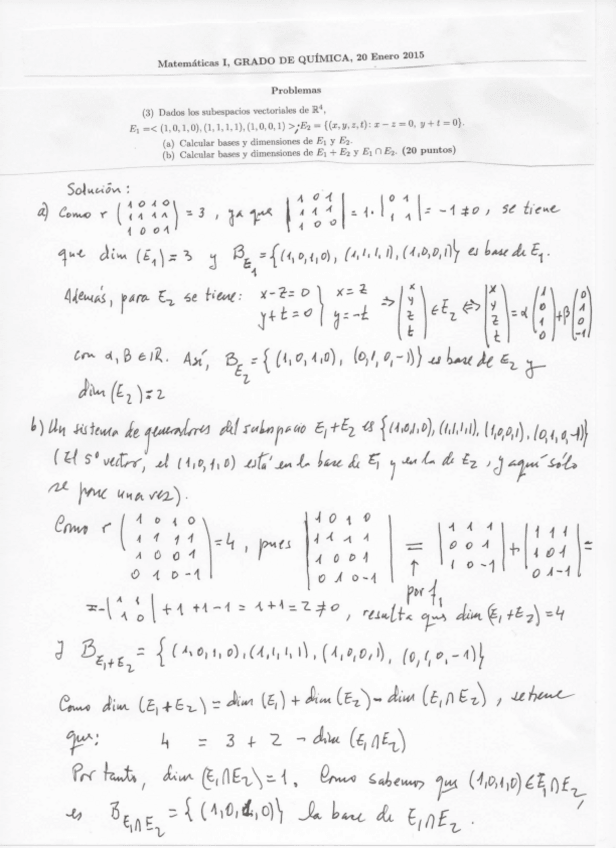 Matemáticas I, GRADO DE QUÍMICA, 20 Enero 2015
Problemas
(3) Dados los subespacios vectoriales de ℝ⁴,
E₁ =< (1, 0, 1, 0), (1, 1, 1, 1), (1, 0, 0, 1) >; E₂ = {(x, y, z, t): x − z = 0, y + t = 0}.
(a) Calcular bases y dimensiones de E₁ y E₂.
(b) Calcular bases y dimensiones de E₁ + E₂ y E₁ ∩ E₂. (20 puntos)
Solución:
a) Como r (1 0 1 0 / 1 1 1 1 / 1 0 0 1) = 3, ya que |1 0 1 / 1 1 1 / 1 0 0| = 1· |0 1 / 1 1| = −1 ≠ 0, se tiene
que dim (E₁) = 3 y B_E₁ = {(1,0,1,0), (1,1,1,1), (1,0,0,1)} es base de E₁.
Además, para E₂ se tiene: x−z=0 / y+t=0 } x=z / y=−t ⇒ (x / y / z / t) ∈ E₂ ⇔ (x / y / z / t) = α (1 / 0 / 1 / 0) + β (0 / 1 / 0 / −1)
con α, β ∈ ℝ. Así, B_E₂ = {(1,0,1,0), (0,1,0,−1)} es base de E₂ y
dim (E₂) = 2
b) Un sistema de generadores del subespacio E₁+E₂ es {(1,0,1,0), (1,1,1,1), (1,0,0,1), (0,1,0,−1)}
(El 5º vector, el (1,0,1,0) está en la base de E₁ y en la de E₂, y aquí sólo
se pone una vez).
Como r (1 0 1 0 / 1 1 1 1 / 1 0 0 1 / 0 1 0 −1) = 4, pues |1 0 1 0 / 1 1 1 1 / 1 0 0 1 / 0 1 0 −1| = |1 1 1 / 0 0 1 / 1 0 −1| + |1 1 1 / 1 0 1 / 0 1 −1| =
↑ por f₁
= −|1 1 / 1 0| + 1 + 1 − 1 = 1+1 = 2 ≠ 0, resulta que dim (E₁+E₂) = 4
y B_E₁+E₂ = {(1,0,1,0), (1,1,1,1), (1,0,0,1), (0,1,0,−1)}
Como dim (E₁+E₂) = dim (E₁) + dim (E₂) − dim (E₁∩E₂), se tiene
que: 4 = 3 + 2 − dim (E₁∩E₂)
Por tanto, dim (E₁∩E₂) = 1. Como sabemos que (1,0,1,0) ∈ E₁∩E₂,
es B_E₁∩E₂ = {(1,0,1,0)} la base de E₁∩E₂.